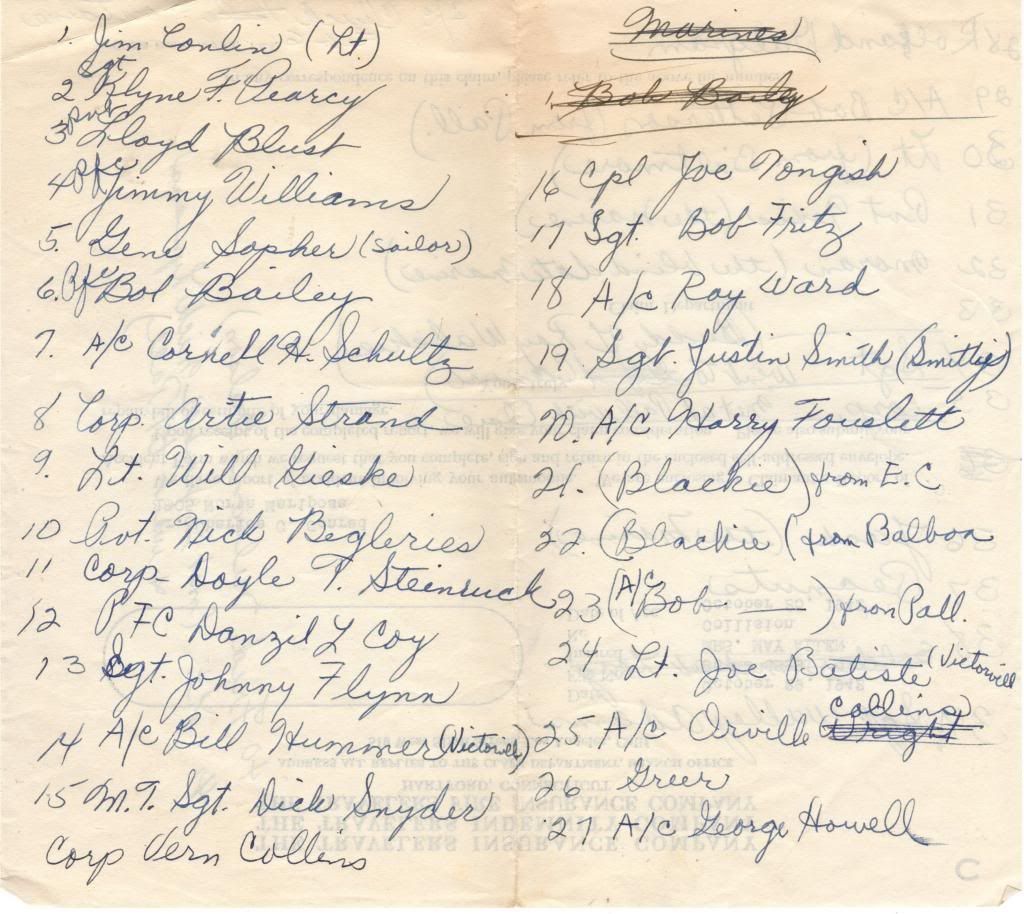 1. Jim Conlin (Lt.)
2 Sgt Klyne F. Pearcy
3 Pvt Lloyd Blust
4 Pfc Jimmy Williams
5. Gene Sopher (sailor)
6. Pfc Bob Bailey
7. A/c Cornell H. Schultz
8 Corp. Artie Strand
9. Lt. Will Gieske
10 Pvt. Nick Begleries
11 Corp- Doyle T. Steinruck
12 P FC Danzil L Coy
13 Sgt. Johnny Flynn
14 A/c Bill Hummer (Victorvill)
15 M.T. Sgt. Dick Snyder
Corp Vern Collins
Marines
1. Bob Bailey
16 Cpl Joe Tongish
17 Sgt. Bob Fritz
18 A/c Ray Ward
19. Sgt. Justin Smith (Smittie)
20. A/c Harry Fouslett
21. (Blackie) from E.C
22. (Blackie (from Balboa
23 (A/C Bob —) from Pall.
24 Lt. Joe Batiste (Victorvill
25 A/c Orville Wright Collins
26 Greer
27 A/c George Howell